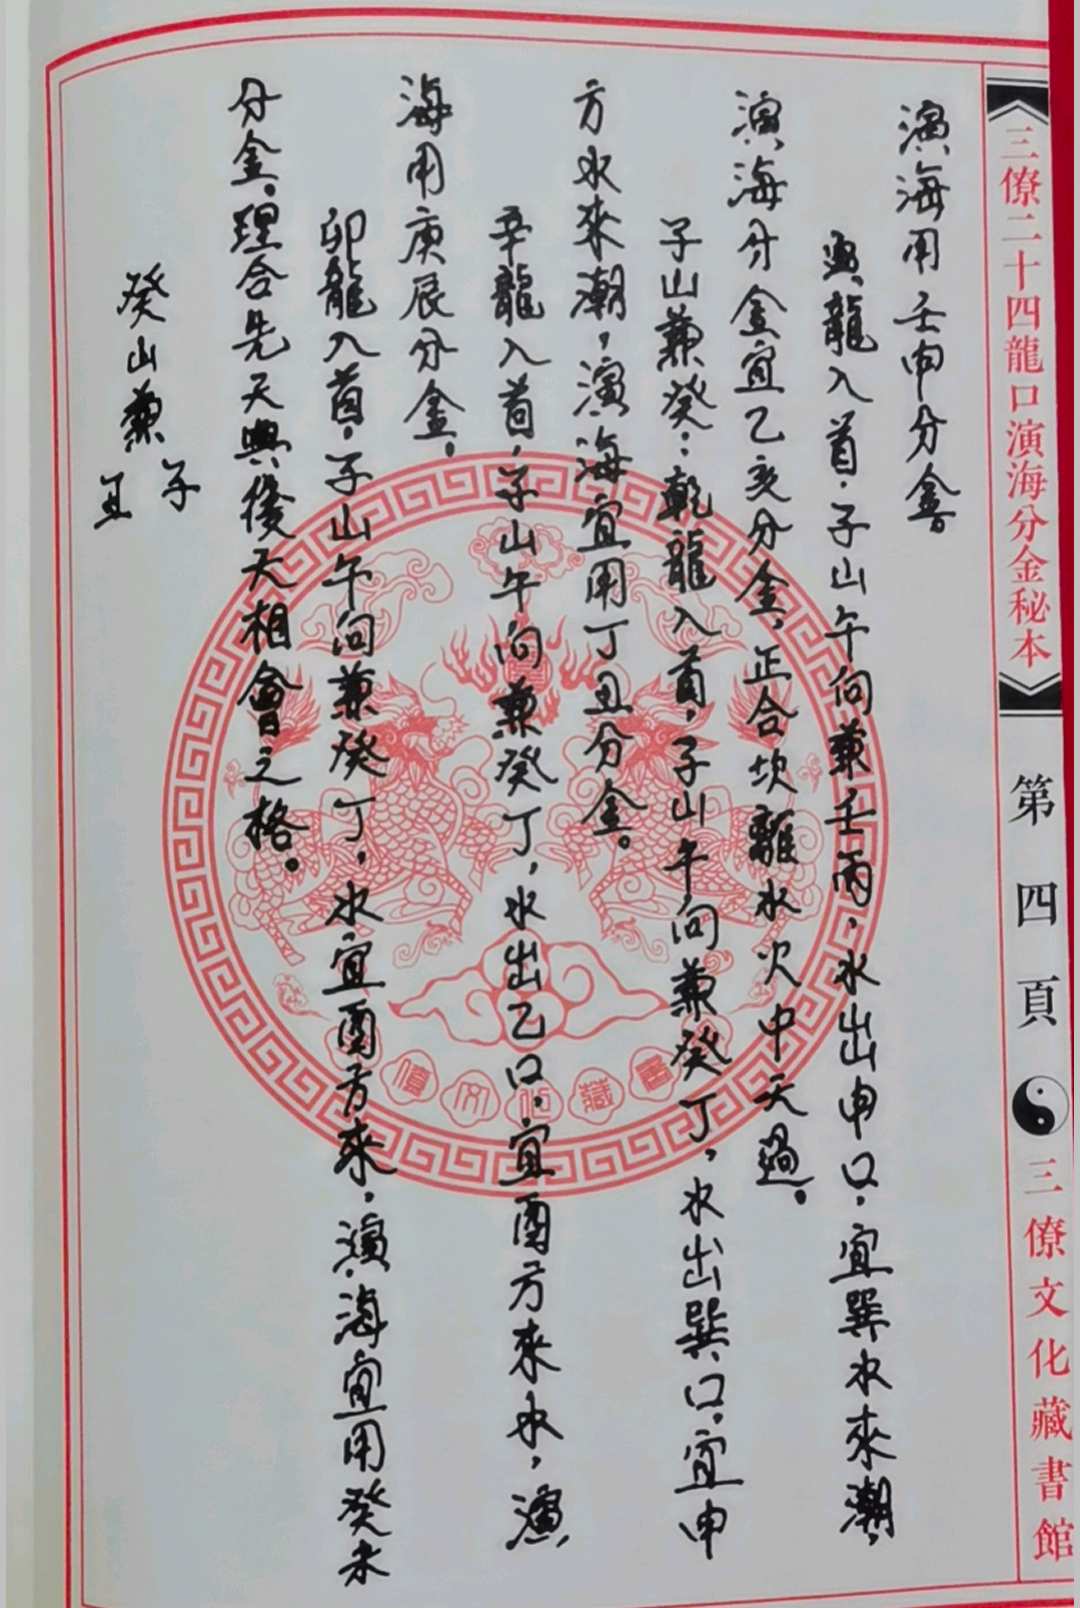 三僚二十四龍口演海分金秘本
第四頁
三僚文化藏書館
演海用壬申分金。
龍入首，子山午向兼壬丙，水出申口，宜巽水來潮，
演海分金宜乙亥分金，正合坎離水火中天過。
子山兼癸：乾龍入首，子山午向兼癸丁，水出巽口，宜申
方水來潮，演海宜用丁丑分金。
辛龍入首，子山午向兼癸丁，水出乙口，宜酉方來水，演
海用庚辰分金。
卯龍入首，子山午向兼癸丁，水宜酉方來，演海宜用癸未
分金。理合先天與後天相會之格。
癸山兼子丑